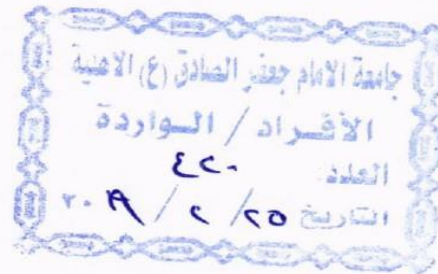 جامعة الامام جعفر الصادق (ع) الاهلية
الأفراد / الواردة
العدد: ٤٢٠
التاريخ ٢٥ / ٢ / ٢٠١٩